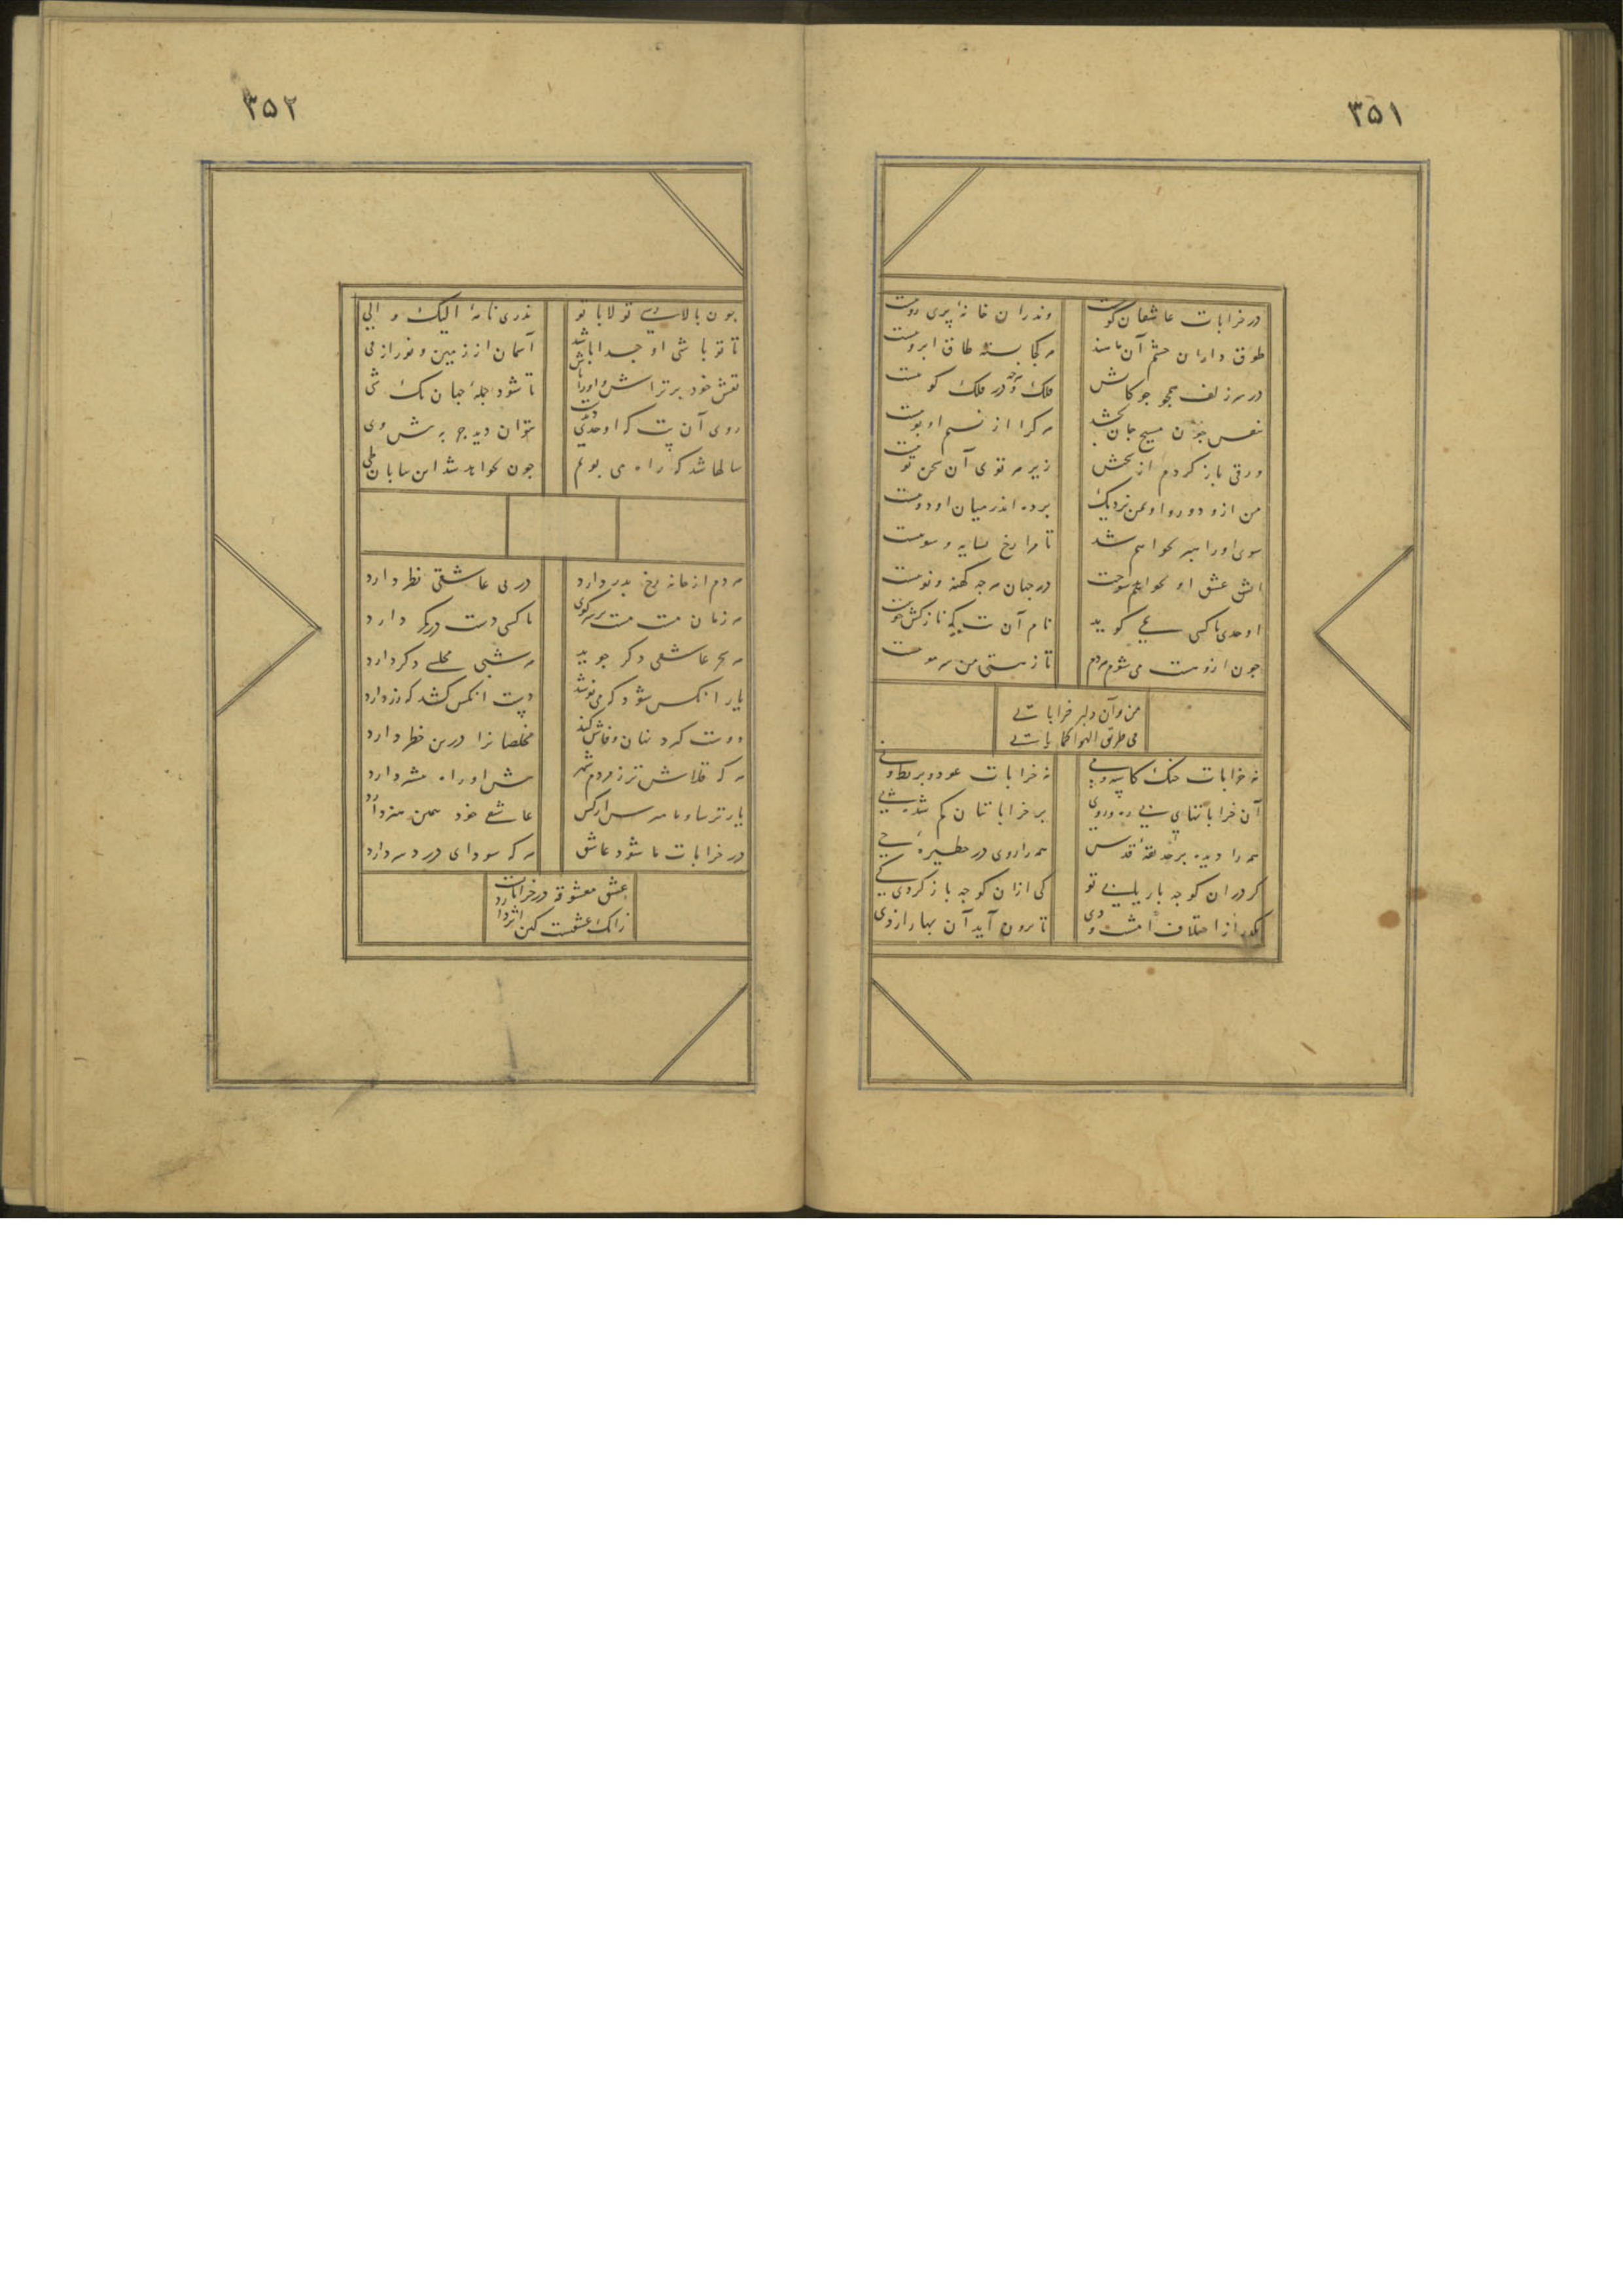 ۳۵۱
در خرابات عاشقان کوییست وندران خانه پری روییست
طوق داران چشم آن ماهند هر کجا بسته طاق ابروییست
در سر زلف همچو چوکانش فلک و هر چه در فلک کوییست
نفس چون مسیح جان بخشد هر کرا از نسیم او بوییست
ورقی باز کردم از سخنش زیر هر توی آن سخن توییست
من ازو دور و او بمن نزدیک پرده اندر میان او و
سوی او راهبر نخواهم شد تا مرا رخ بسایه و سوییست
اتش عشق او نخواهم سوخت در جهان هر چه کهنه و نوییست
اوحدی با کسی نمی کوید نام آن بت که نازکش خوییست
چون ازوست می شوم هر دم تا ز هستی من سر موییست
من و آن دلبر خراباتی
فی طریق الهوا کما یاتی
نه خرابات چنک کاسه و می نه خرابات عود و بربط و نی
آن خراباتهای بی ره و روی بر خراباتیان کم شده پی
همه را دیده بر حدیقه قدس همه را روی در حظیره حی
کر در ان کوچه بار یابی تو کی ازان کوچه باز کردی کی
بگذر از اختلاف امشب و دی تا برون آید آن بهار از دی
۳۵۲
چون بالای تو لابا تو ندری نامه الیک و الی
تا تو باشی او جدا باشد آسمان از زمین و نور از فی
نقش خود برتراش و او را باش تا شود جمله جهان یک شی
روی آن بت که اوحدی دیدست نتوان دید جز به پیش وی
سالها شد که راه می پویم چون نخواهد شد این بیابان طی
هر دم از خانه رخ بدر دارد در پی عاشقی نظر دارد
هر زمان مست بر سر کوی با کسی دست در کمر دارد
هر سحر عاشقی دکر جوید هر شبی مجلسی دکر دارد
یار انکس شود که می نوشد دست انکس کشد که زر دارد
دوست کرد نهان و فاش کند مخلصانرا درین خطر دارد
هر که قلاش تر ز مردم شهر پیش او راه بیشتر دارد
یار ترسا و ما عاشقی خود همین هنر دارد
در خرابات ما شود عاشق هر که سودای درد سر دارد
عشق معشوقه در خرابات
زانک عشقست کین اثر دارد